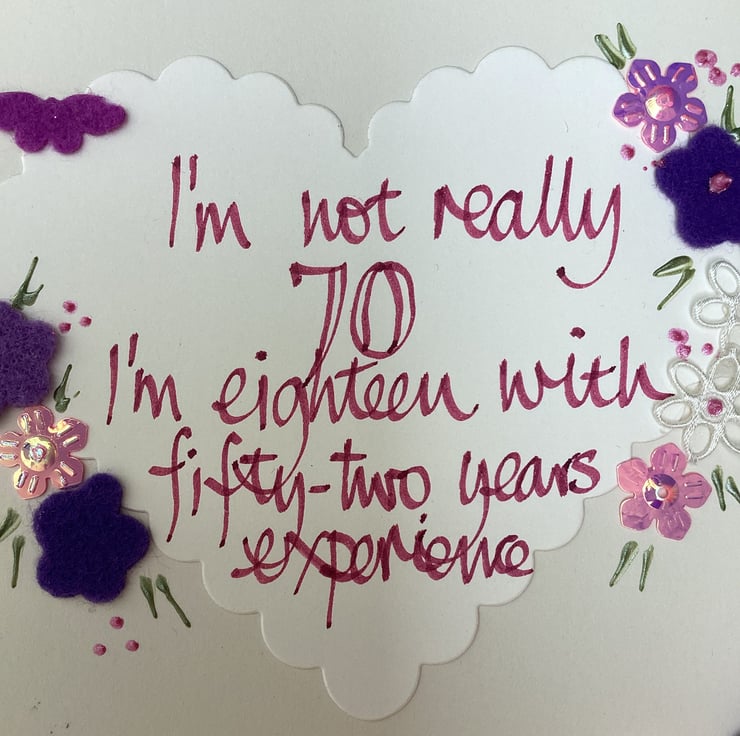 I'm not really
70
I'm eighteen with
fifty-two years
experience